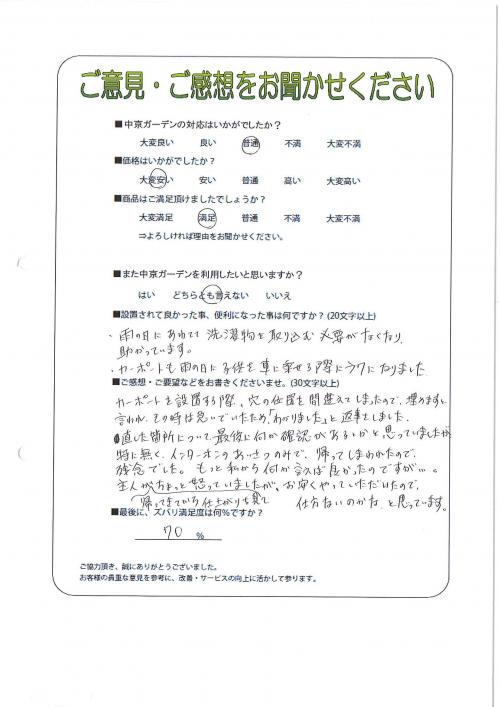 ご意見・ご感想をお聞かせください
■中京ガーデンの対応はいかがでしたか？
大変良い　良い　普通　不満　大変不満
■価格はいかがでしたか？
大変安い　安い　普通　高い　大変高い
■商品はご満足頂けましたでしょうか？
大変満足　満足　普通　不満　大変不満
⇒よろしければ理由をお聞かせください。
■また中京ガーデンを利用したいと思いますか？
はい　どちらとも言えない　いいえ
■設置されて良かった事、便利になった事は何ですか？(20文字以上)
・雨の日にあわてて洗濯物を取り込む必要がなくなり
助かっています。
・カーポートも雨の日に子供を車に乗せる際にラクになりました
■ご感想・ご要望などをお書きくださいませ。(30文字以上)
カーポートを設置する際、穴の位置を間違えてしまったので、埋めますと
言われ、その時は急いでいたため「わかりました」と返事をしました。
直した箇所について最後に何か確認があるかと思っていましたが
特に無く、インターホンのあいさつのみで、帰ってしまわれたので、
残念でした。もっと私から何か言えば良かったのですが…。
主人がちょっと怒っていましたが、お安くやっていただいたので、
帰ってきてから仕上がりを見て　仕方ないのかな、と思っています。
■最後に、ズバリ満足度は何％ですか？
70 ％
ご協力頂き、誠にありがとうございました。
お客様の貴重な意見を参考に、改善・サービスの向上に活かして参ります。